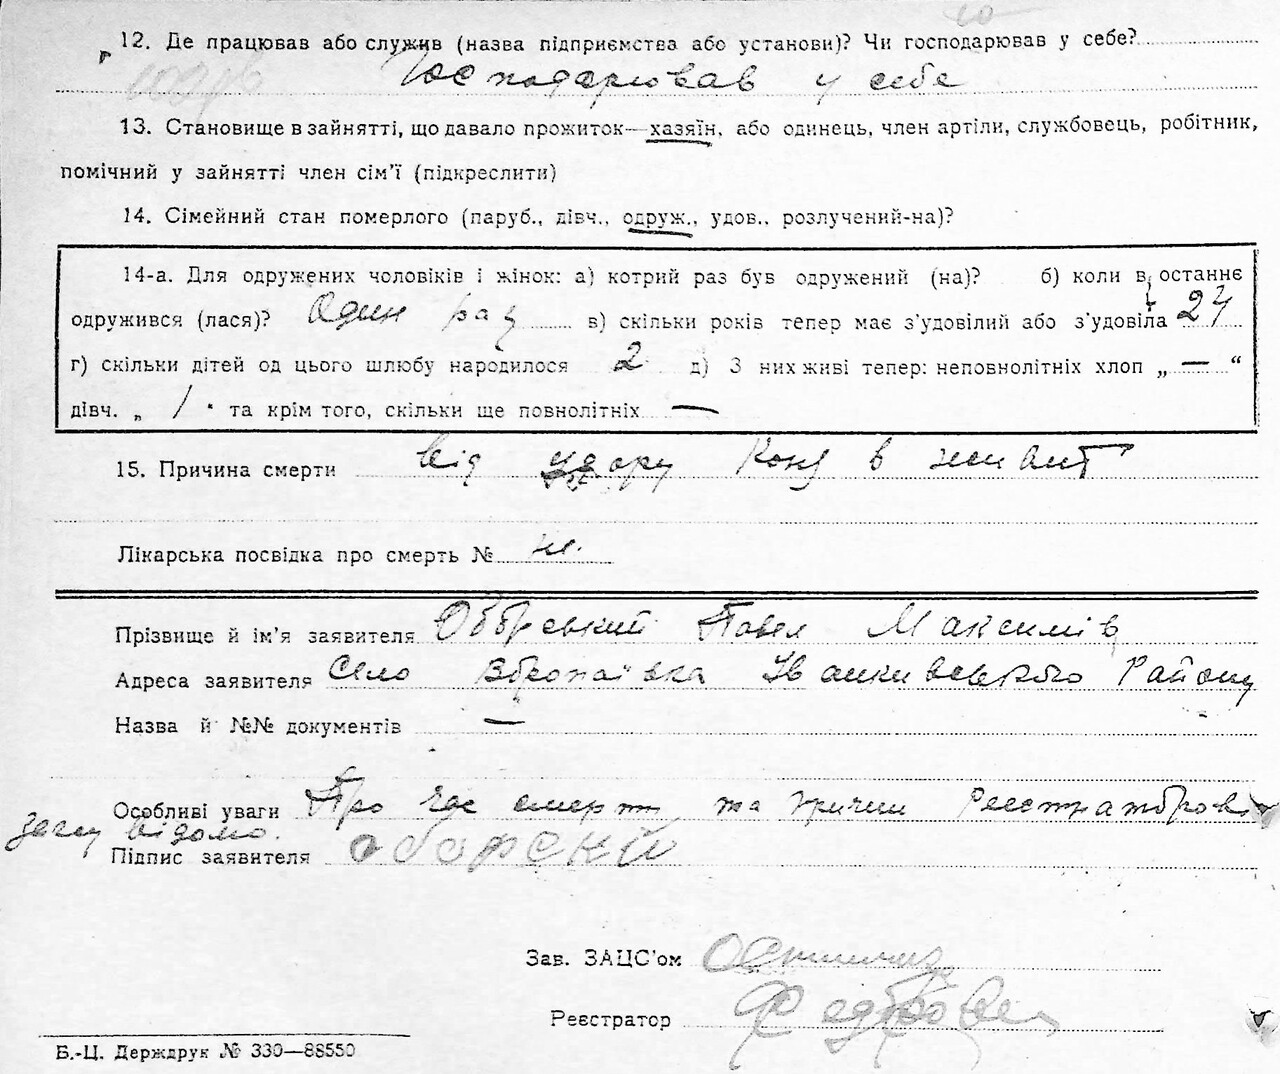 12. Де працював або служив (назва підприємства або установи)? Чи господарював у себе?
Господарював у себе
13. Становище в зайнятті, що давало прожиток—хазяїн, або одинець, член артіли, службовець, робітник,
помічний у зайнятті член сім'ї (підкреслити)
14. Сімейний стан померлого (паруб., дівч., одруж., удов., розлучений-на)?
14-а. Для одружених чоловіків і жінок: а) котрий раз був одружений (на)? б) коли в останнє
одружився (лася)? Один раз в) скільки років тепер має з'удовілий або з'удовіла 24
г) скільки дітей од цього шлюбу народилося 2 д) З них живі тепер: неповнолітніх хлоп „ — “
дівч. „ 1 “ та крім того, скільки ще повнолітніх —
15. Причина смерти від удару коня в живіт
Лікарська посвідка про смерть №
Прізвище й ім'я заявителя Оборський Павел Максимів
Адреса заявителя Село Воропаївка Іванкивського Району
Назва й №№ документів —
Особливі уваги Про час смерти та причин Реєстраторові
загсу відомо.
Підпис заявителя оборский
Зав. ЗАЦС'ом
Реєстратор
Б.-Ц. Держдрук № 330—88550